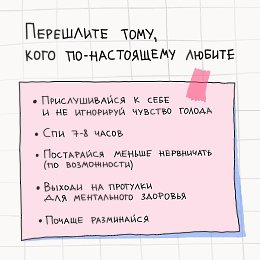 Перешлите тому,
кого по-настоящему любите
• Прислушивайся к себе
и не игнорируй чувство голода
• Спи 7-8 часов
• Постарайся меньше нервничать
(по возможности)
• Выходи на прогулки
для ментального здоровья
• Почаще разминайся